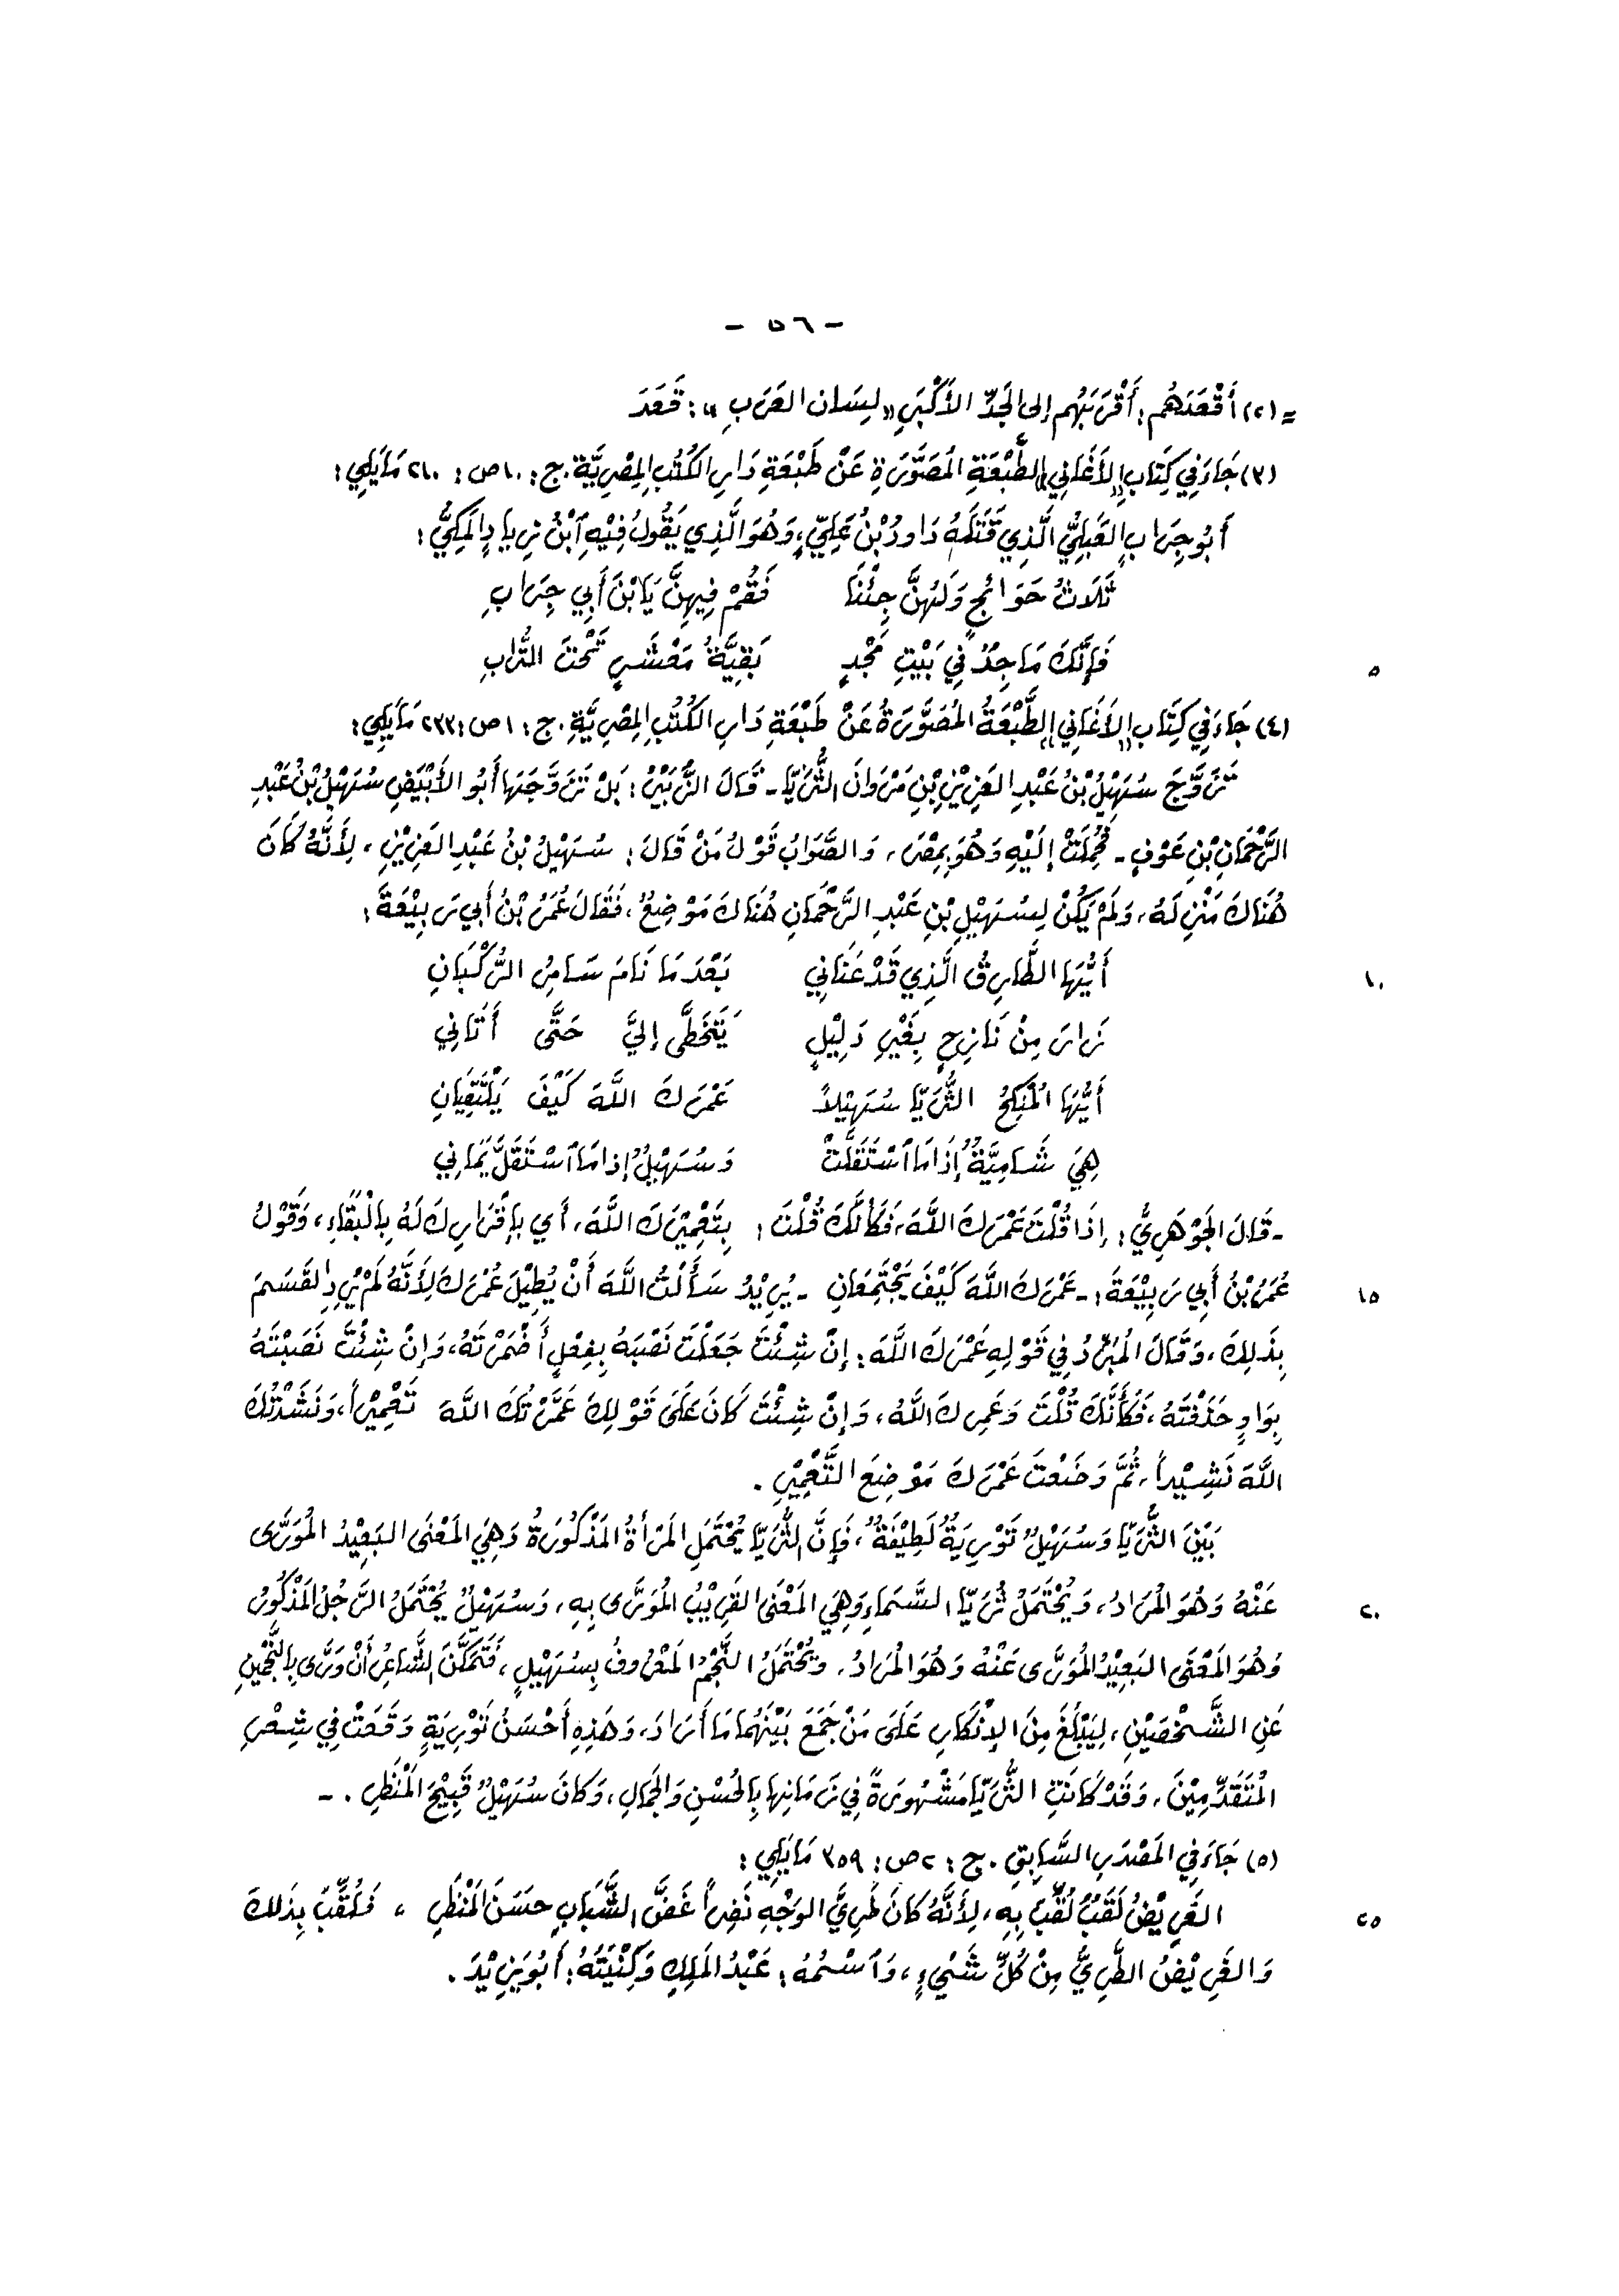 - ٥٦ -
= (٢) أَقْعَدَهُم : أَقْرَبَهُم إلى الجَدِّ الأَكْبَرِ «لِسَان العَرَبِ» : قَعَدَ
(٣) جَاءَ في كِتَابِ «الأَغَاني» الطَّبْعَةِ المُصَوَّرَةِ عَنْ طَبْعَةِ دَارِ الكُتُبِ المِصْرِيَّة . ج : ١٠ ص : ٢٦٠ مَا يَلِي :
أَبُو جِرَابٍ العَبَلِيُّ الَّذِي قَتَلَهُ دَاوودُ بْنُ عَلِيٍّ ، وَهُوَ الَّذِي يَقُولُ فِيْهِ ٱبْنُ زِيادٍ المَكِيُّ :
ثَلَاثُ حَوَائِجٍ وَلَهُنَّ جِئْنَا فَقُمْ فِيهِنَّ يَا بْنَ أَبِي جِرَابِ
فَإِنَّكَ مَاجِدٌ في بَيْتِ مَجْدٍ بَقِيَّةُ مَعْشَرٍ تَحْتَ التُّرَابِ ٥
(٤) جَاءَ في كِتَابِ «الأَغَاني» الطَّبْعَةُ المُصَوَّرَةُ عَنْ طَبْعَةِ دَارِ الكُتُبِ المِصْرِيَّةِ . ج : ١ ص : ٢٣٣ مَا يَلِي :
تَزَوَّجَ سُهَيْلُ بْنُ عَبْدِ العَزِيْزِ بْنِ مَرْوَانَ الثُّرَيَّا - قَالَ الزُّبَيْرُ : بَلْ تَزَوَّجَهَا أَبُو الأَبْيَضِ سُهَيْلُ بْنُ عَبْدِ
الرَّحْمَانِ بْنِ عَوْفٍ - فَحُمِلَتْ إِلَيْهِ وَهُوَ بِمِصْرَ ، وَالصَّوَابُ قَوْلُ مَنْ قَالَ : سُهَيْلُ بْنُ عَبْدِ العَزِيْزِ ، لِأَنَّهُ كَانَ
هُنَاكَ مَنْزِلَهُ ، وَلَمْ يَكُنْ لِسُهَيْلِ بْنِ عَبْدِ الرَّحْمَانِ هُنَاكَ مَوْضِعٌ ، فَقَالَ عُمَرُ بْنُ أَبِي رَبِيْعَةَ :
أَيُّهَا الطَّارِقُ الَّذِي قَدْ عَنَانِي بَعْدَ مَا نَامَ سَامِرُ الرُّكْبَانِ ١٠
زَارَ مِنْ نَازِحٍ بِغَيْرِ دَلِيْلٍ يَتَخَطَّى إِلَيَّ حَتَّى أَتَانِي
أَيُّهَا المُنْكِحُ الثُّرَيَّا سُهَيْلاً عَمْرَكَ اللَّهَ كَيْفَ يَلْتَقِيَانِ
هِيَ شَامِيَّةٌ إِذَا مَا ٱسْتَقَلَّتْ وَسُهَيْلٌ إِذَا مَا ٱسْتَقَلَّ يَمَانِي
- قَالَ الجَوْهَرِيُّ : إِذَا قُلْتَ عَمْرَكَ اللَّهَ ، فَكَأَنَّكَ قُلْتَ : بِتَعْمِيْرِكَ اللَّهَ ، أَي بِإِقْرَارِكَ لَهُ بِالْبَقَاءِ ، وَقَوْلُ
عُمَرُ بْنُ أَبِي رَبِيْعَةَ : - عَمْرَكَ اللَّهَ كَيْفَ يَجْتَمِعَانِ - يُرِيْدُ سَأَلْتُ اللَّهَ أَنْ يُطِيْلَ عُمْرَكَ لِأَنَّهُ لَمْ يُرِدِ القَسَمَ ١٥
بِذَلِكَ ، وَقَالَ المُبَرِّدُ في قَوْلِهِ عَمْرَكَ اللَّهَ : إِنْ شِئْتَ جَعَلْتَ نَصْبَهُ بِفِعْلٍ أَضْمَرْتَهُ ، وَإِنْ شِئْتَ نَصَبْتَهُ
بِوَاوٍ حَذَفْتَهُ ، فَكَأَنَّكَ قُلْتَ وَعَمْرِكَ اللَّهُ ، وَإِنْ شِئْتَ كَانَ عَلَى قَوْلِكَ عَمَّرْتُكَ اللَّهَ تَعْمِيْراً ، وَنَشَدْتُكَ
اللَّهَ نَشِيْداً ، ثُمَّ وَضَعْتَ عَمْرَكَ مَوْضِعَ التَّعْمِيْرِ .
بَيْنَ الثُّرَيَّا وَسُهَيْلٌ تَوْرِيَةٌ لَطِيْفَةٌ ، فَإِنَّ الثُّرَيَّا يُحْتَمَلِ المَرْأةُ المَذْكُورَةُ وَهِيَ المَعْنَى البَعِيْدُ المُوَرَّى
عَنْهُ وَهُوَ المُرَادُ ، وَيُحْتَمَلُ ثُرَيَّا السَّمَاءِ وَهِيَ المَعْنَى القَرِيْبُ المُوَرَّى بِهِ ، وَسُهَيْلٌ يُحْتَمَلُ الرَّجُلُ المَذْكُورُ ٢٠
وَهُوَ المَعْنَى البَعِيْدُ المُوَرَّى عَنْهُ وَهُوَ المُرَادُ ، وَيُحْتَمَلُ النَّجْمُ المَعْرُوفُ بِسُهَيْلٍ ، فَتَمَكَّنَ الشَّاعِرُ أَنْ وَرَّى بِالنَّجْمَيْنِ
عَنِ الشَّخْصَيْنِ ، لِيَبْلُغَ مِنَ الإِنْكَارِ عَلَى مَنْ جَمَعَ بَيْنَهُمَا مَا أَرَادَ ، وَهَذِهِ أَحْسَنُ تَوْرِيَةٍ وَقَعَتْ فِي شِعْرِ
المُتَقَدِّمِيْنَ ، وَقَدْ كَانَتِ الثُّرَيَّا مَشْهُورَةً فِي زَمَانِهَا بِالحُسْنِ وَالجَمَالِ ، وَكَانَ سُهَيْلٌ قَبِيْحَ المَنْظَرِ . -
(٥) جَاءَ فِي المَصْدَرِ السَّابِقِ . ج : ٢ ص : ٣٥٩ مَا يَلِي :
الغَرِيْضُ لَقَبٌ لُقِّبَ بِهِ ، لِأَنَّهُ كَانَ طَرِيَّ الوَجْهِ نَضِراً غَضَّ الشَّبَابِ حَسَنَ المَنْظَرِ ، فَلُقِّبَ بِذَلِكَ ٢٥
وَالغَرِيْضُ الطَّرِيُّ مِنْ كُلِّ شَيْءٍ ، وَٱسْمُهُ : عَبْدُ المَلِكِ وَكِنْيَتُهُ : أَبُو يَزِيْدَ .